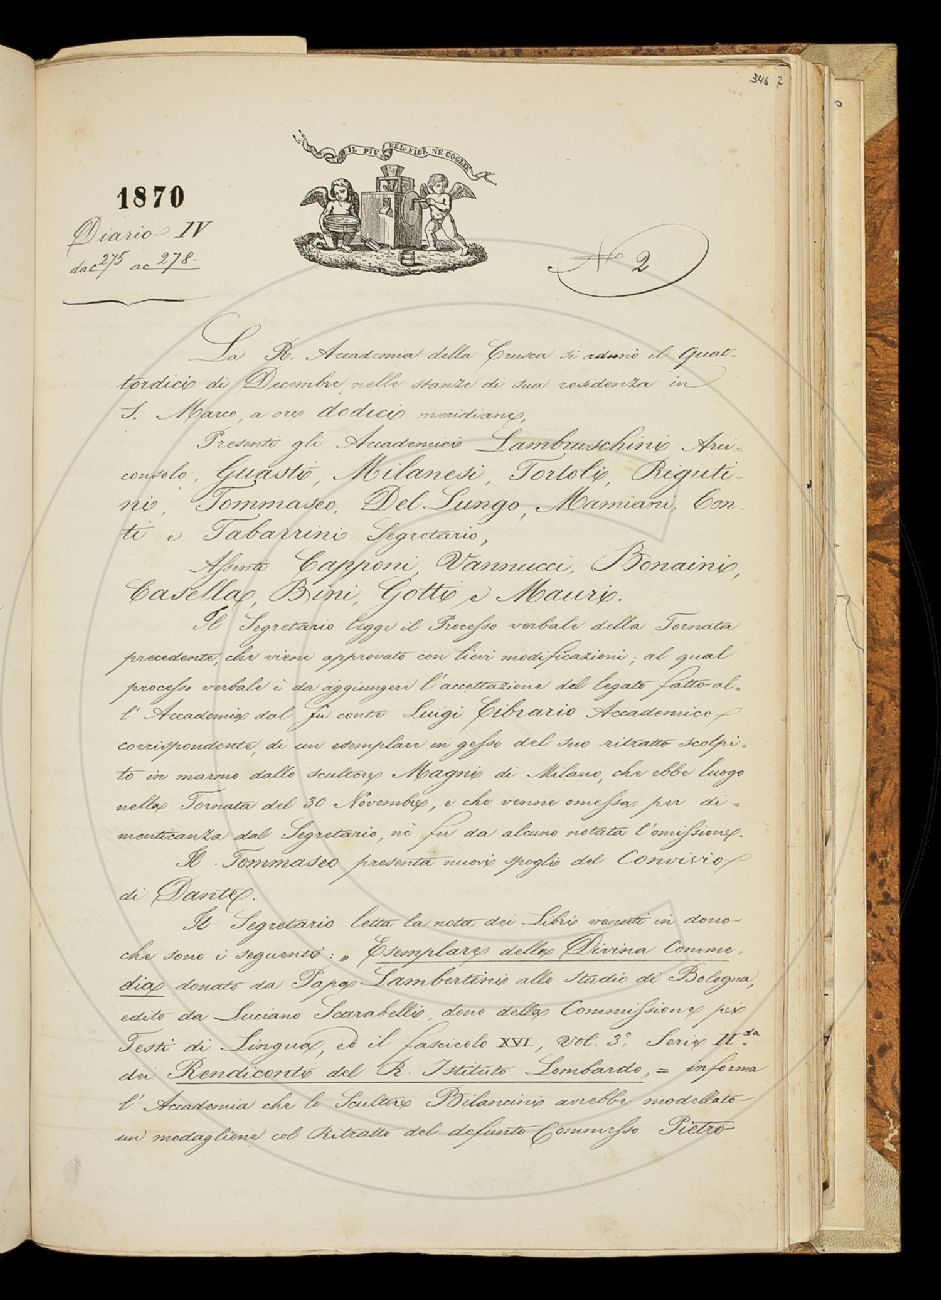 346 2
IL PIÙ BEL FIOR NE COGLIE
1870
Diario IV
da c 275 a c 278.
N.o 2
La R. Accademia della Crusca si adunò il quat-
tordici di Decembre nelle stanze di sua residenza in
S. Marco, a ore dodici meridiane,
Presenti gli Accademici Lambruschini Arci-
consolo, Guasti, Milanesi, Tortoli, Riguti-
ni, Tommaseo, Del Lungo, Mamiani, Con-
ti e Tabarrini Segretario,
Assenti Capponi, Vannucci, Bonaini,
Casella, Bini, Gotti e Mauri.
Il Segretario legge il Processo verbale della Tornata
precedente, che viene approvato con lievi modificazioni; al qual
processo verbale è da aggiungere l'accettazione del legato fatto al-
l'Accademia dal fù conte Luigi Cibrario Accademico
corrispondente, di un esemplare in gesso del suo ritratto scolpi-
to in marmo dallo scultore Magni di Milano, che ebbe luogo
nella Tornata del 30 Novembre, e che venne omessa per di-
menticanza dal Segretario, nè fu da alcuno notata l'omissione.
Il Tommaseo presenta nuovi spogli del Convivio
di Dante.
Il Segretario letta la nota dei Libri venuti in dono
che sono i seguenti: „ Esemplare della Divina Comme-
dia donato da Papa Lambertini allo studio di Bologna,
edito da Luciano Scarabelli, dono della Commissione pei
Testi di Lingua, ed il fascicolo XVI, Vol. 3.o, Serie II.da
dei Rendiconti del R. Istituto Lombardo, = informa
l'Accademia che lo Scultore Bilancini avrebbe modellato
un medaglione col Ritratto del defunto Commesso Pietro